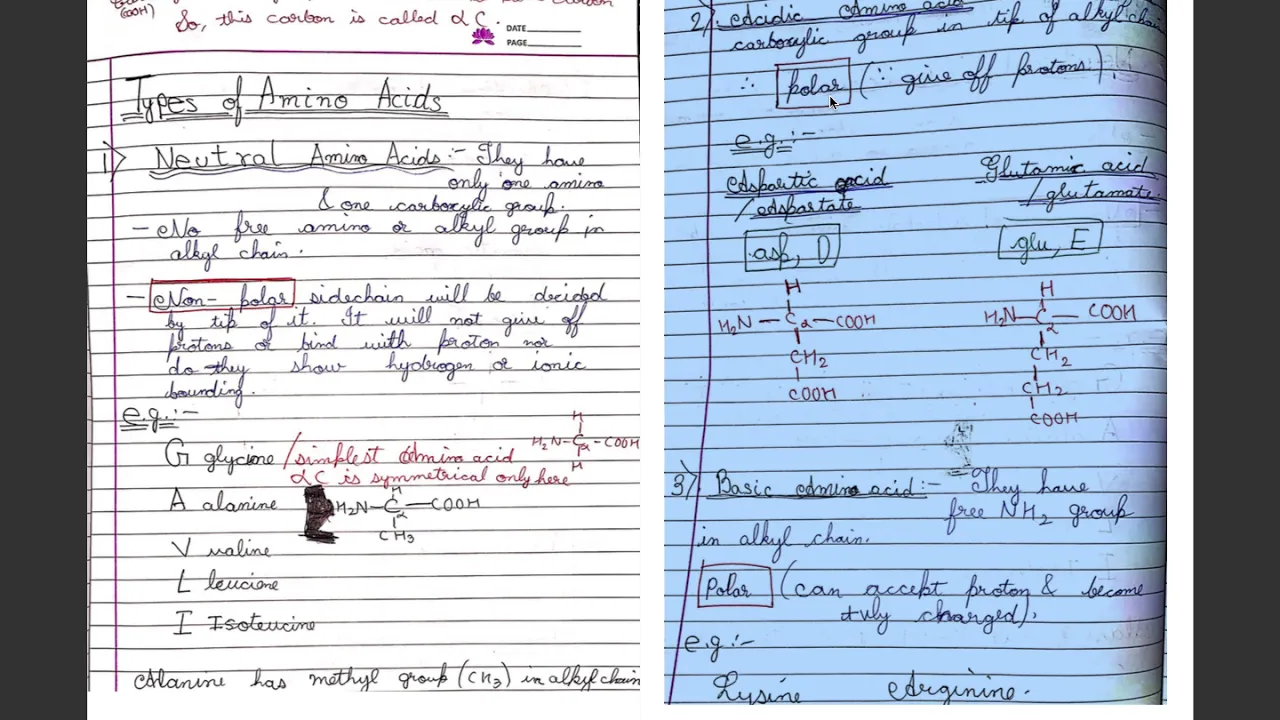 COOH)
So, this carbon is called αC.
DATE
PAGE
Types of Amino Acids
1) Neutral Amino Acids:- They have
only one amino
& one carboxylic group.
- No free amino or alkyl group in
alkyl chain.
- Non-polar sidechain will be decided
by tip of it. It will not give off
protons or bind with proton nor
do they show hydrogen or ionic
bounding.
e.g.:-
G glycine / simplest Amino acid
αC is symmetrical only here
H
H2N-Cα-COOH
H
A alanine
H
H2N-Cα-COOH
CH3
V valine
L leucine
I Isoleucine
Alanine has methyl group (CH3) in alkyl chain
2) Acidic Amino acid
carboxylic group in tip of alkyl chain
∴ polar (∵ give off protons).
e.g.:-
Aspartic acid
/ Aspartate
asp, D
H
H2N-Cα-COOH
CH2
COOH
Glutamic acid
/ glutamate
glu, E
H
H2N-Cα-COOH
CH2
CH2
COOH
3) Basic Amino acid:- They have
free NH2 group
in alkyl chain.
Polar (can accept proton & become
+vly charged).
e.g:-
Lysine Arginine.